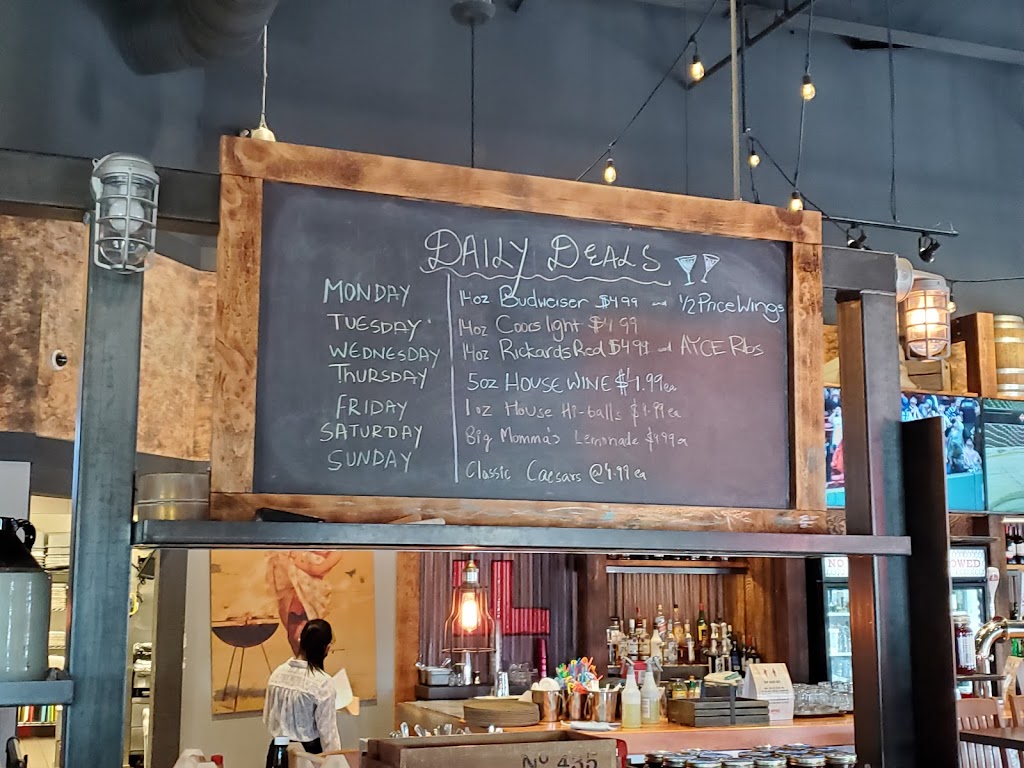 DAILY DEALS
MONDAY 14oz Budweiser $4.99 and 1/2 Price Wings
TUESDAY 14oz Coors light $4.99
WEDNESDAY 14oz Rickards Red $4.99 and AYCE Ribs
THURSDAY 5oz HOUSE WINE $4.99 ea
FRIDAY 1oz House Hi-balls $4.99 ea
SATURDAY Big Momma's Lemonade $4.99 ea
SUNDAY Classic Caesars @4.99 ea
NO
OWED
L
No 435